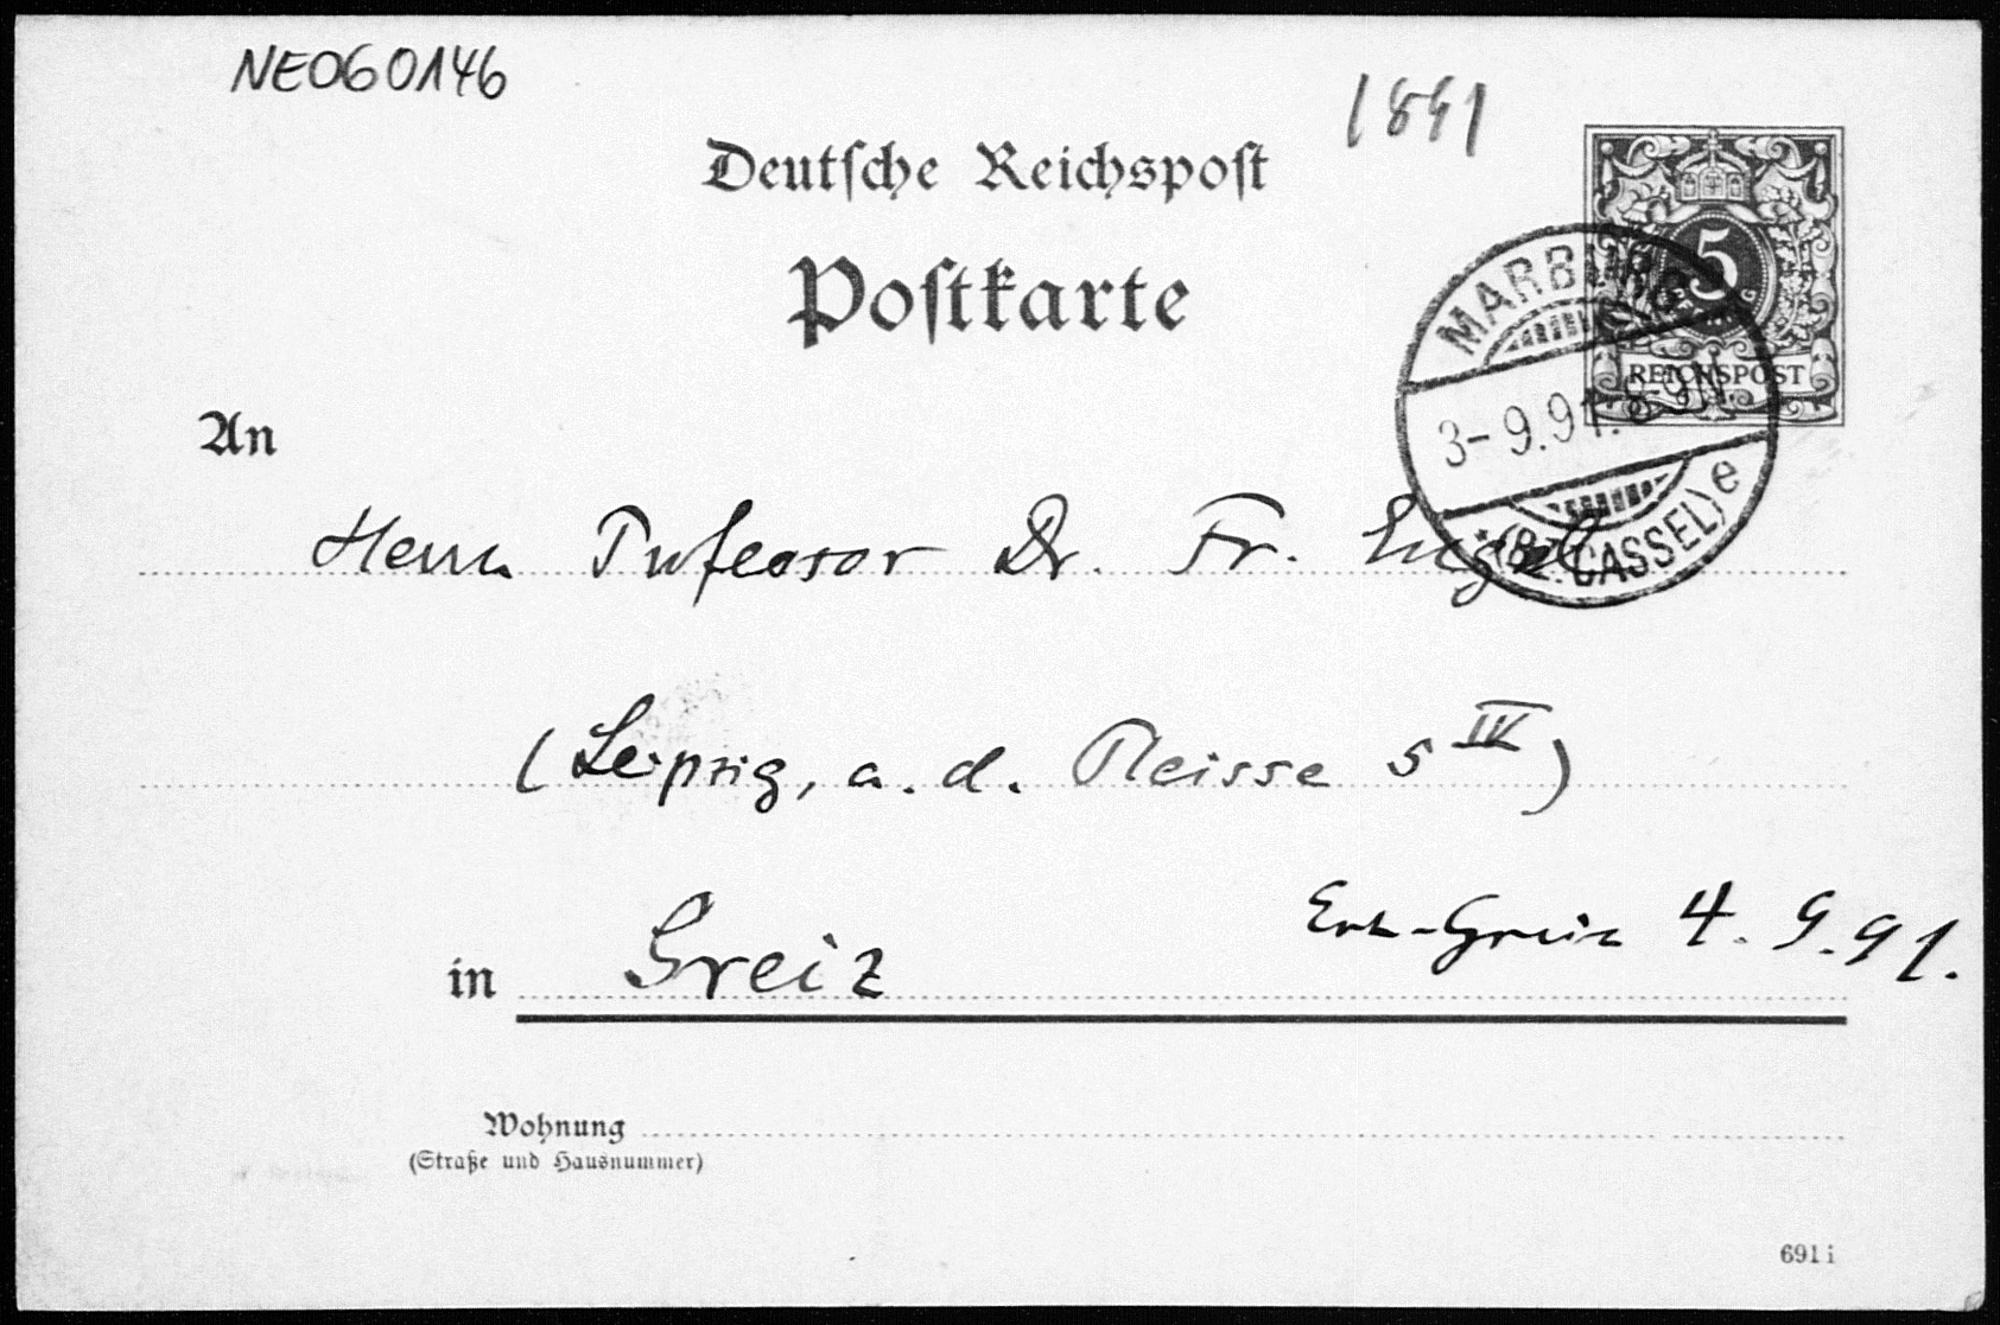 NE060146
1891
Deutsche Reichspost
Postkarte
5
REICHSPOST
MARBURG
3-9.91.8-9N.
*(BZ. CASSEL) e
An
Herrn Professor Dr. Fr. Engel
(Leipzig, a. d. Pleisse 5 IV)
in Greiz
Erh. Greiz 4. 9. 91.
Wohnung
(Straße und Hausnummer)
691 i